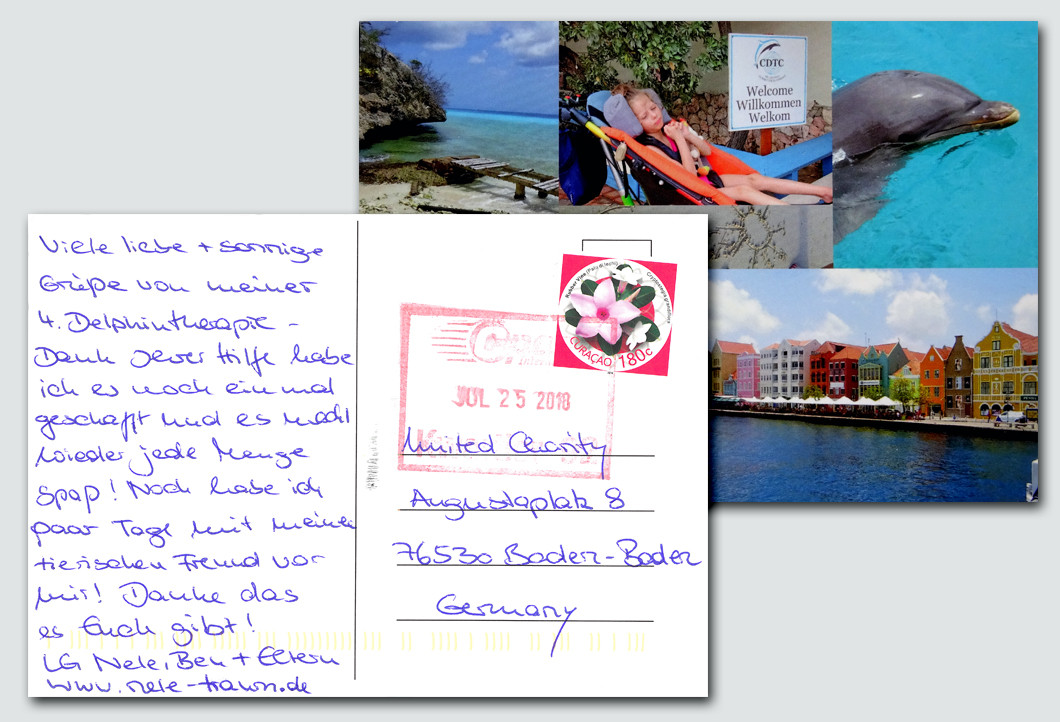 CDTC
Welcome
Willkommen
Welkom
Viele liebe + sonnige
Grüße von meiner
4. Delphintherapie –
Dank Eurer Hilfe habe
ich es noch einmal
geschafft und es macht
wieder jede Menge
Spaß! Noch habe ich
paar Tage mit meinen
tierischen Freund vor
mir! Danke das
es Euch gibt!
LG Nele, Ben + Eltern
www.nele-traum.de
Rubber Vine
Cryptostegia grandiflora
CURAÇAO 180c
JUL 25 2018
United Charity
Augustaplatz 8
76530 Baden-Baden
Germany